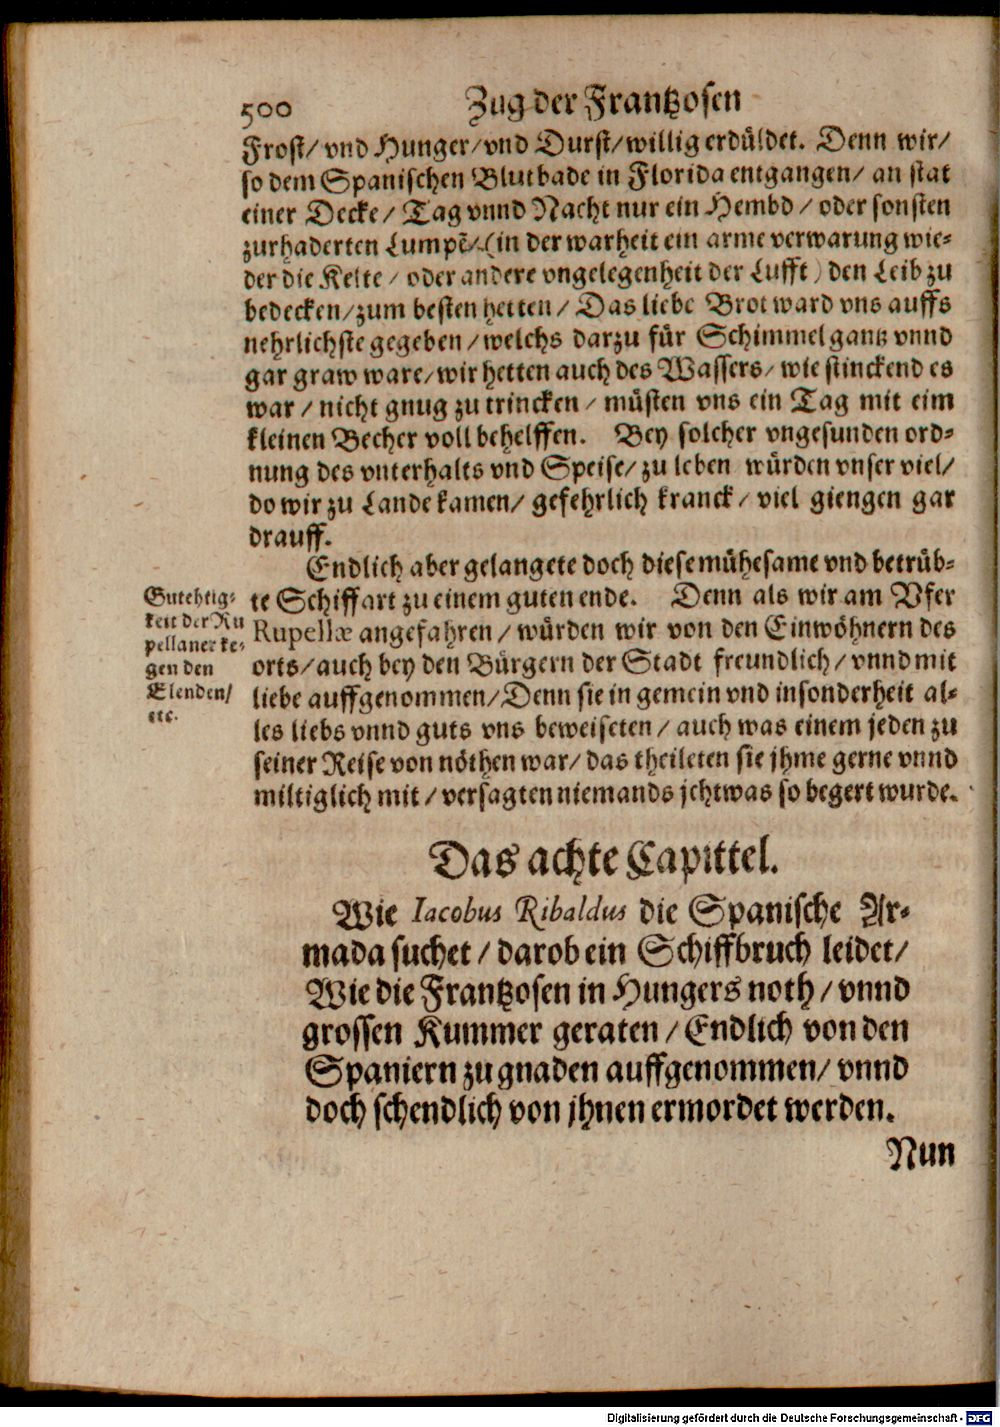 500 Zug der Frantzosen
Frost/ vnd Hunger/ vnd Durst/ willig erdüldet. Denn wir/
so dem Spanischen Blutbade in Florida entgangen/ an stat
einer Decke/ Tag vnnd Nacht nur ein Hembd/ oder sonsten
zurhaderten Lumpē/ (in der warheit ein arme verwarung wie-
der die Kelte/ oder andere vngelegenheit der Lufft) den Leib zu
bedecken/ zum besten hetten/ Das liebe Brot ward vns auffs
nehrlichste gegeben/ welchs darzu für Schimmel gantz vnnd
gar graw ware/ wir hetten auch des Wassers/ wie stinckend es
war/ nicht gnug zu trincken/ müsten vns ein Tag mit eim
kleinen Becher voll behelffen. Bey solcher vngesunden ord-
nung des vnterhalts vnd Speise/ zu leben würden vnser viel/
do wir zu Lande kamen/ gefehrlich kranck/ viel giengen gar
drauff.
Endlich aber gelangete doch diese mühesame vnd betrüb-
te Schiffart zu einem guten ende. Denn als wir am Vfer
Rupellæ angefahren/ würden wir von den Einwöhnern des
orts/ auch bey den Bürgern der Stadt freundlich/ vnnd mit
liebe auffgenommen/ Denn sie in gemein vnd insonderheit al-
les liebs vnnd guts vns beweiseten/ auch was einem jeden zu
seiner Reise von nöthen war/ das theileten sie jhme gerne vnnd
miltiglich mit/ versagten niemands jchtwas so begert wurde.
Gutehtig-
keit der Ru
pellaner ke-
gen den
Elenden/
etc.
Das achte Capittel.
Wie Iacobus Ribaldus die Spanische Ar-
mada suchet/ darob ein Schiffbruch leidet/
Wie die Frantzosen in Hungers noth/ vnnd
grossen Kummer geraten/ Endlich von den
Spaniern zu gnaden auffgenommen/ vnnd
doch schendlich von jhnen ermordet werden.
Nun
Digitalisierung gefördert durch die Deutsche Forschungsgemeinschaft - DFG